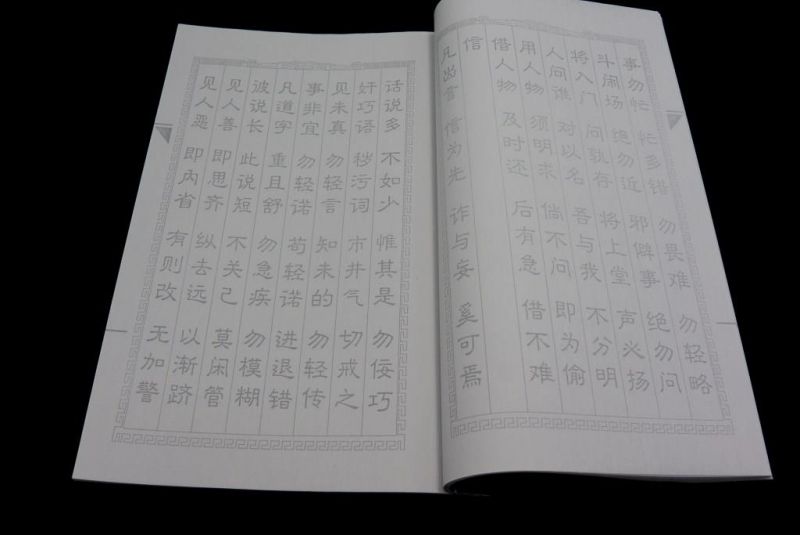 事勿忙 忙多错 勿畏难 勿轻略
斗闹场 绝勿近 邪僻事 绝勿问
将入门 问孰存 将上堂 声必扬
人问谁 对以名 吾与我 不分明
用人物 须明求 倘不问 即为偷
借人物 及时还 后有急 借不难
信
凡出言 信为先 诈与妄 奚可焉
话说多 不如少 惟其是 勿佞巧
奸巧语 秽污词 市井气 切戒之
见未真 勿轻言 知未的 勿轻传
事非宜 勿轻诺 苟轻诺 进退错
凡道字 重且舒 勿急疾 勿模糊
彼说长 此说短 不关己 莫闲管
见人善 即思齐 纵去远 以渐跻
见人恶 即内省 有则改 无加警